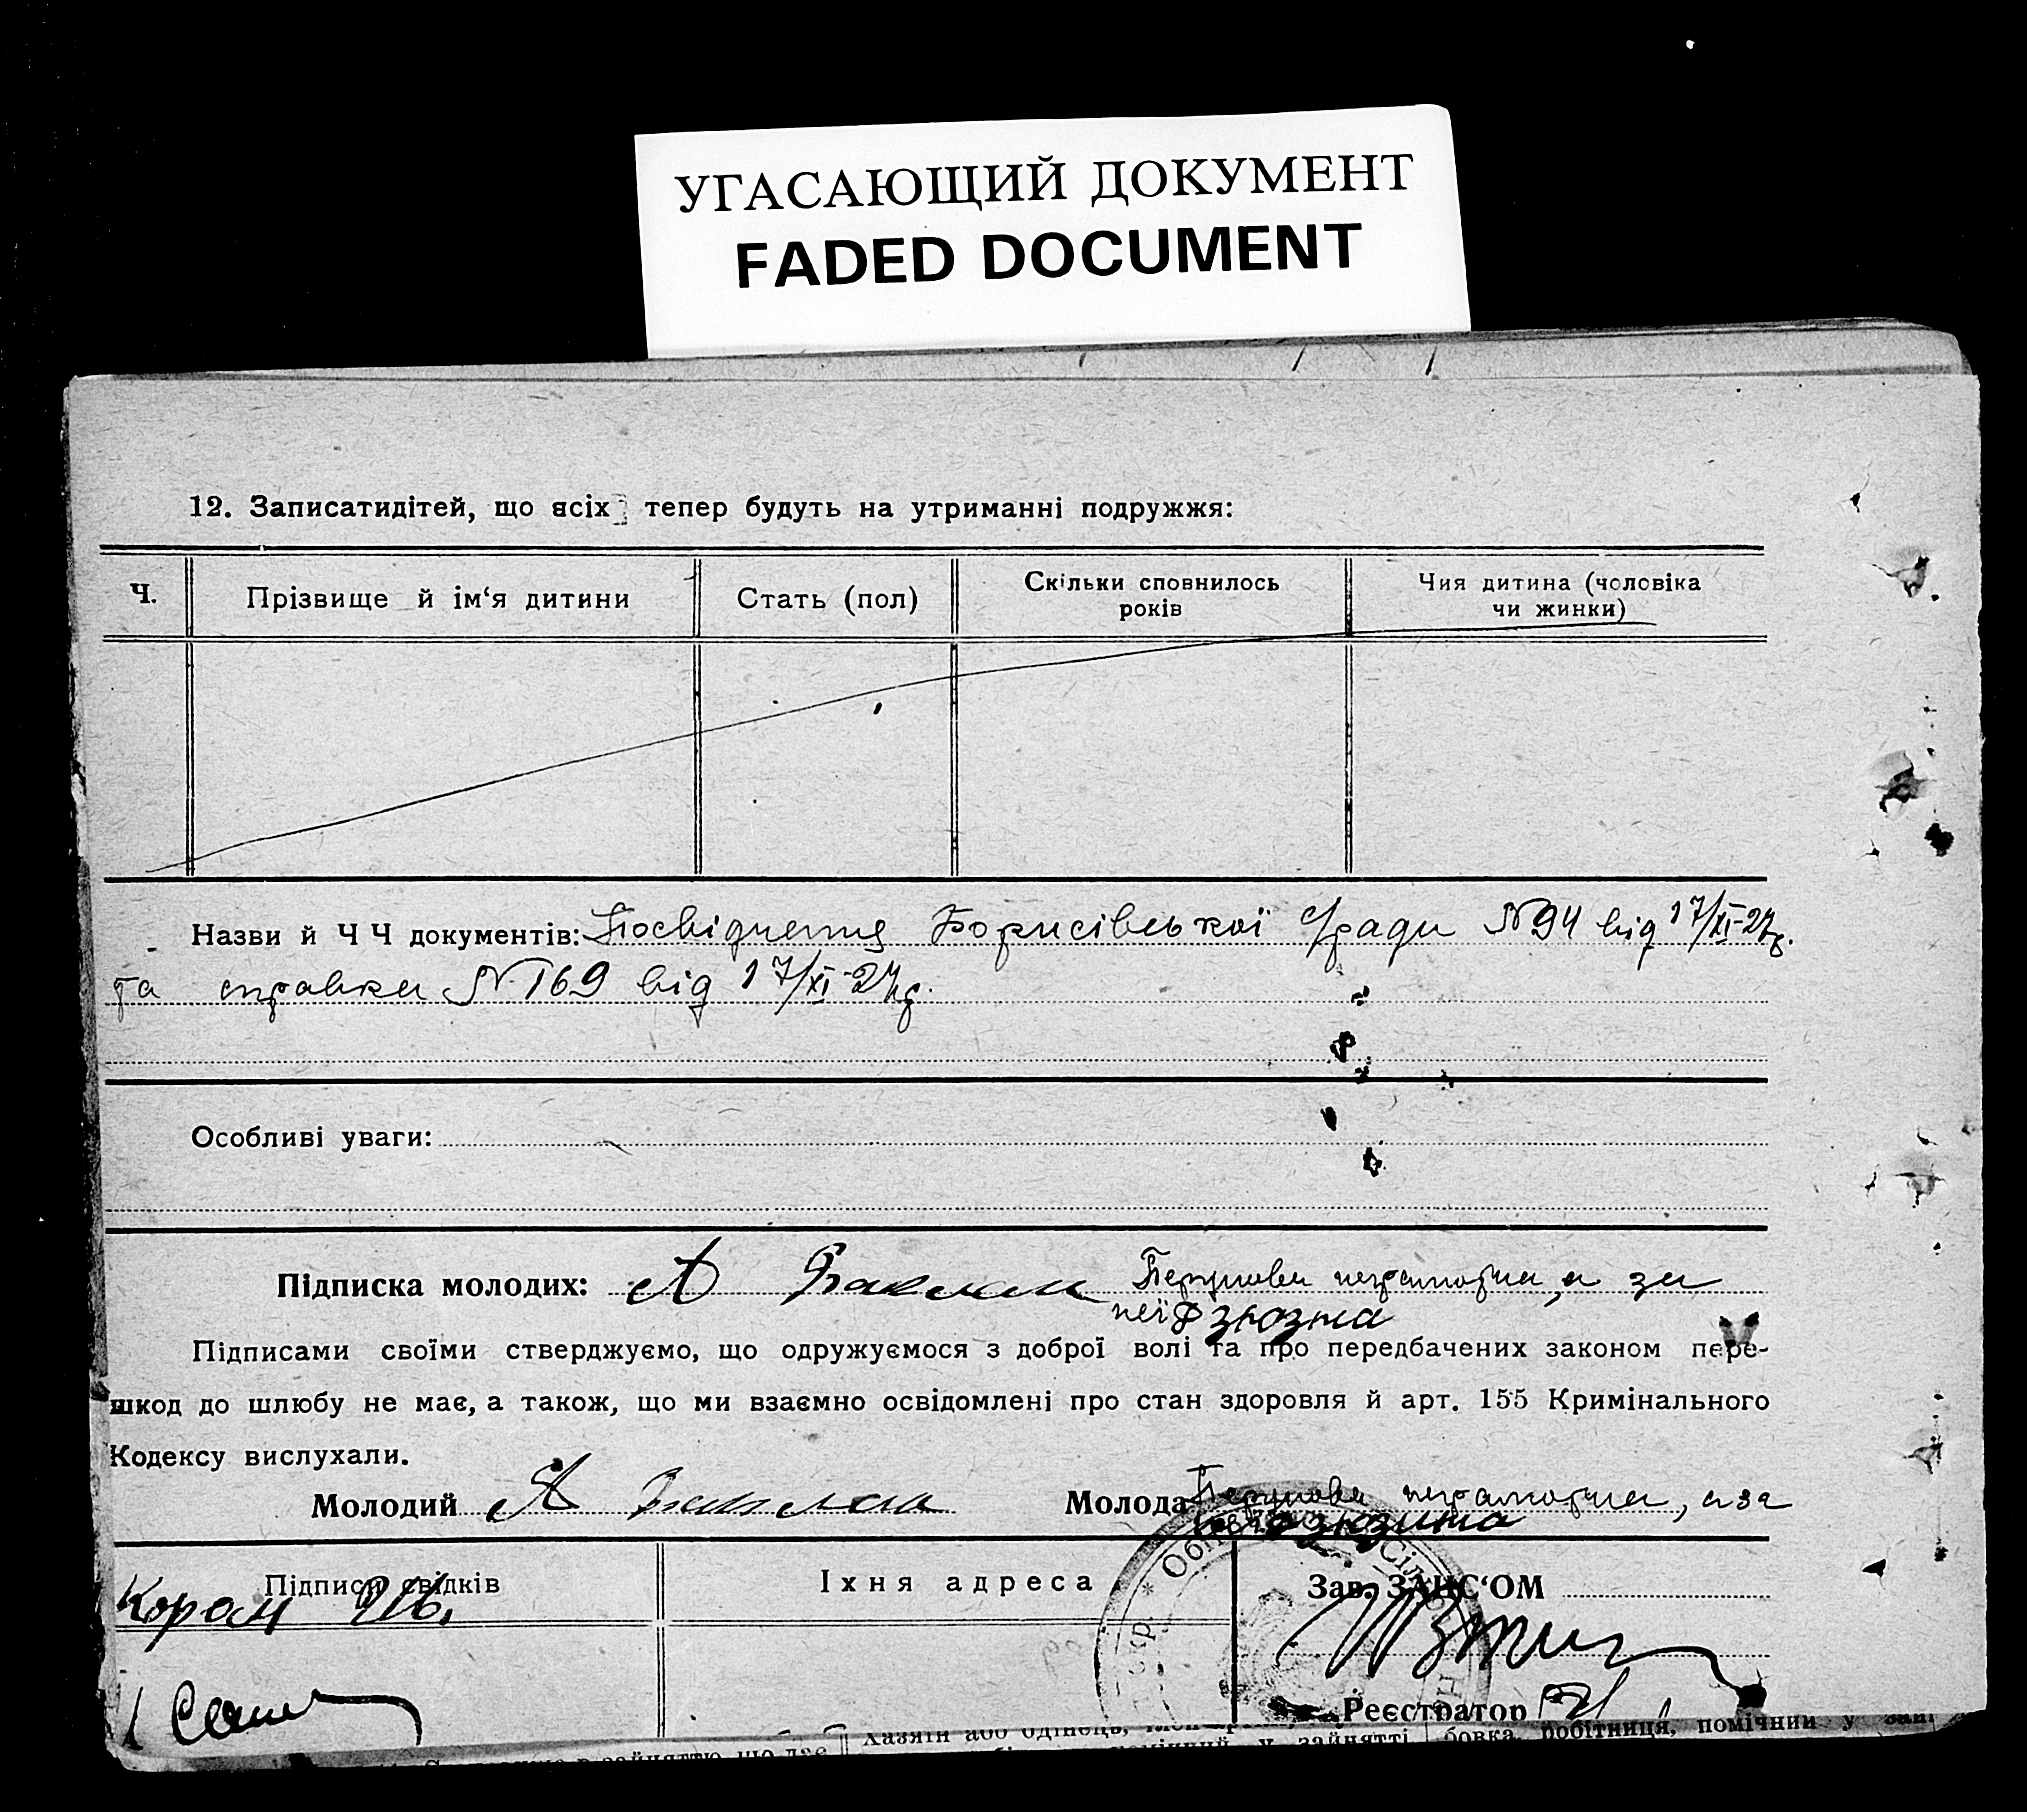 УГАСАЮЩИЙ ДОКУМЕНТ
FADED DOCUMENT
12. Записатидітей, що всіх тепер будуть на утриманні подружжя:
Ч.
Прізвище й ім‘я дитини
Стать (пол)
Скільки сповнилось
років
Чия дитина (чоловіка
чи жинки)
Назви й Ч Ч документів: Посвідчення Борисівської с/ради №94 від 17/XI-27р.
та справка №169 від 17/XI-27р.
Особливі уваги:
Підписка молодих: А неграмотна, а за
неї
Підписами своїми стверджуємо, що одружуємося з доброї волі та про передбачених законом пере-
шкод до шлюбу не має, а також, що ми взаємно освідомлені про стан здоровля й арт. 155 Кримінального
Кодексу вислухали.
Молодий А Молода неграмотна, а за
Підписи свідків
Їхня адреса
Зав. ЗАГС‘ОМ
Реєстратор